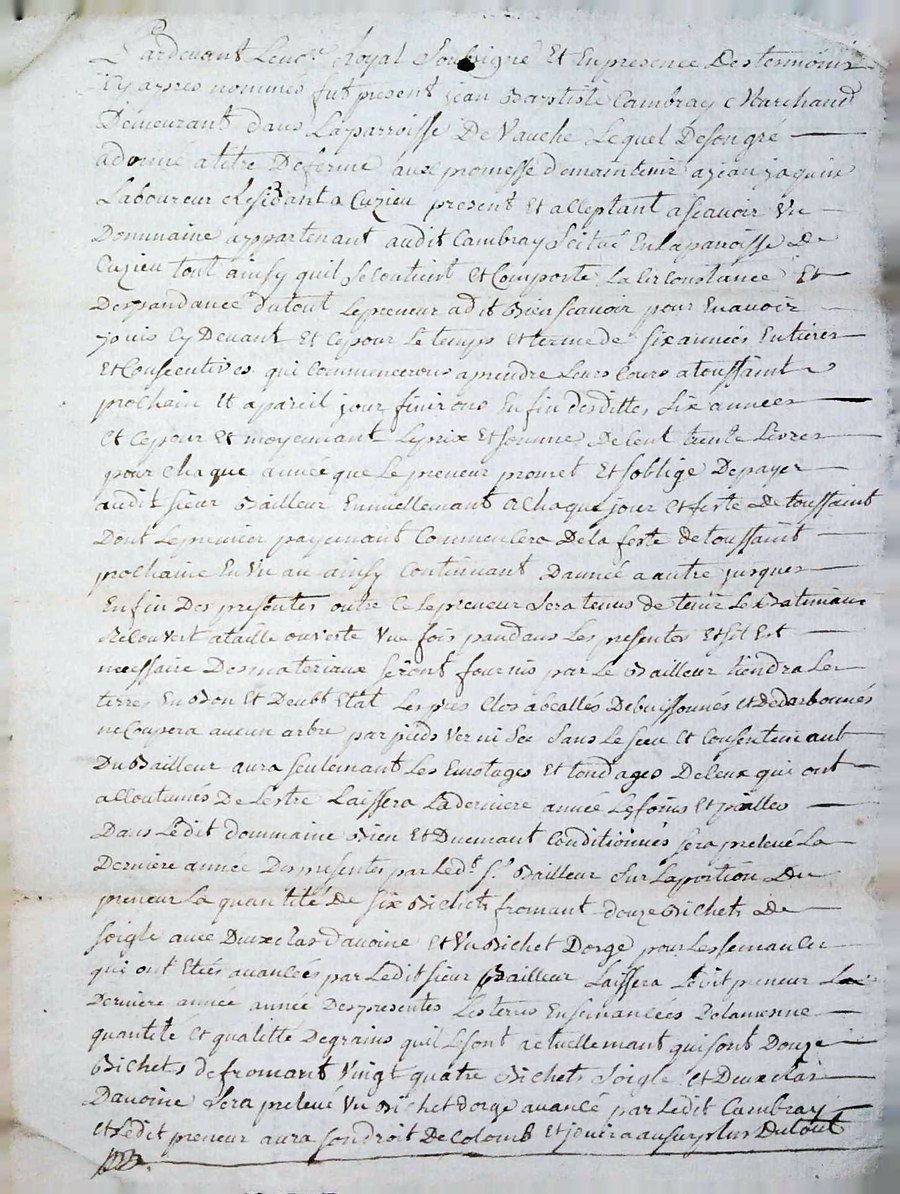 Pardevant Le no.re Royal Soubsigné Et En presence Des temoins
Cy apres nommés fut present jean Baptiste Cambray Marchand
Demeurant dans La parroisse De Vauche Lequel De son gré
a donné a titre De ferme avec promesse de maintenir a jean jaquin
Laboureur Residant a Cuzieu present Et acceptant a scavoir Un
Dommaine appartenant audit Cambray Scitué En La paroisse De
Cuzieu tout ainsy quil Se contient Et Comporte La Circonstance Et
Despandance Du tout Le preneur a dit Bien scavoir pour En avoir
joüis Cy Devant Et Ce pour Le temps Et terme de six années Entieres
Et Consecutives qui Commenceront a prendre Leurs Cours a toussaint
prochain Et a pareil jour finirons En fin desdittes six années
Et Ce pour Et moyennant Le prix Et somme De Cent trente Livres
pour chaque année que Le preneur promet Et soblige De payer
audit sieur Bailleur Ennuellemant a Chaque jour Et feste De toussaint
Dont Le premier payemant Commencera De la feste de toussaint
prochaine En Un an ainsy Continuant D'année a autre jusques
En fin Des presentes outre Ce Le preneur Sera tenus de tenir Le Batimant
Recouvert a taille ouverte Une fois pandans Les presentes Et sil Est
necessaire Des materiaux seront fournis par Le Bailleur tiendra Les
terres En Bon Et Deubt Etat Les pres Clos abeallés Debuissonnés Et Dedarbonnés
ne Coupera aucun arbre par pieds Ver ni Sec Sans Le sceu Et Consentemant
Du Bailleur aura seulemant Les Emotages Et tondages De Ceux qui ont
accoutumés De Lestre Laissera La derniere année Le foins Et pailles
Dans Ledit dommaine Bien Et Duemant Conditionnés sera prelevé La
Derniere année Des presentes par Led.t S.r Bailleur Sur La portion Du
preneur La quantité De six Bichets fromant douze Bichets De
soigle avec Deux clas davoine Et Un Bichet Dorge pour Les semances
qui ont Etées avancées par Ledit sieur Bailleur Laissera Ledit preneur La
Derniere année année Des presentes Les terres Ensemancées De la mesme
quantité Et qualitté De grains quil Le sont actuellemant qui sont Douze
Bichets de fromant Vingt quatre Bichets Soigle Et Deux clas
Davoine Sera prelevé Un Bichet dorge avancé par Ledit Cambray
Et Ledit preneur aura son droit De Colomb Et jouira au surplus Du tout